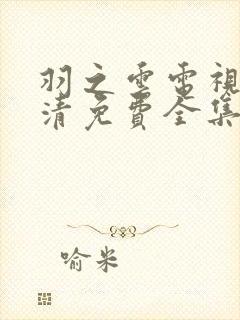 羽之雲電視
清免費全集
喻米